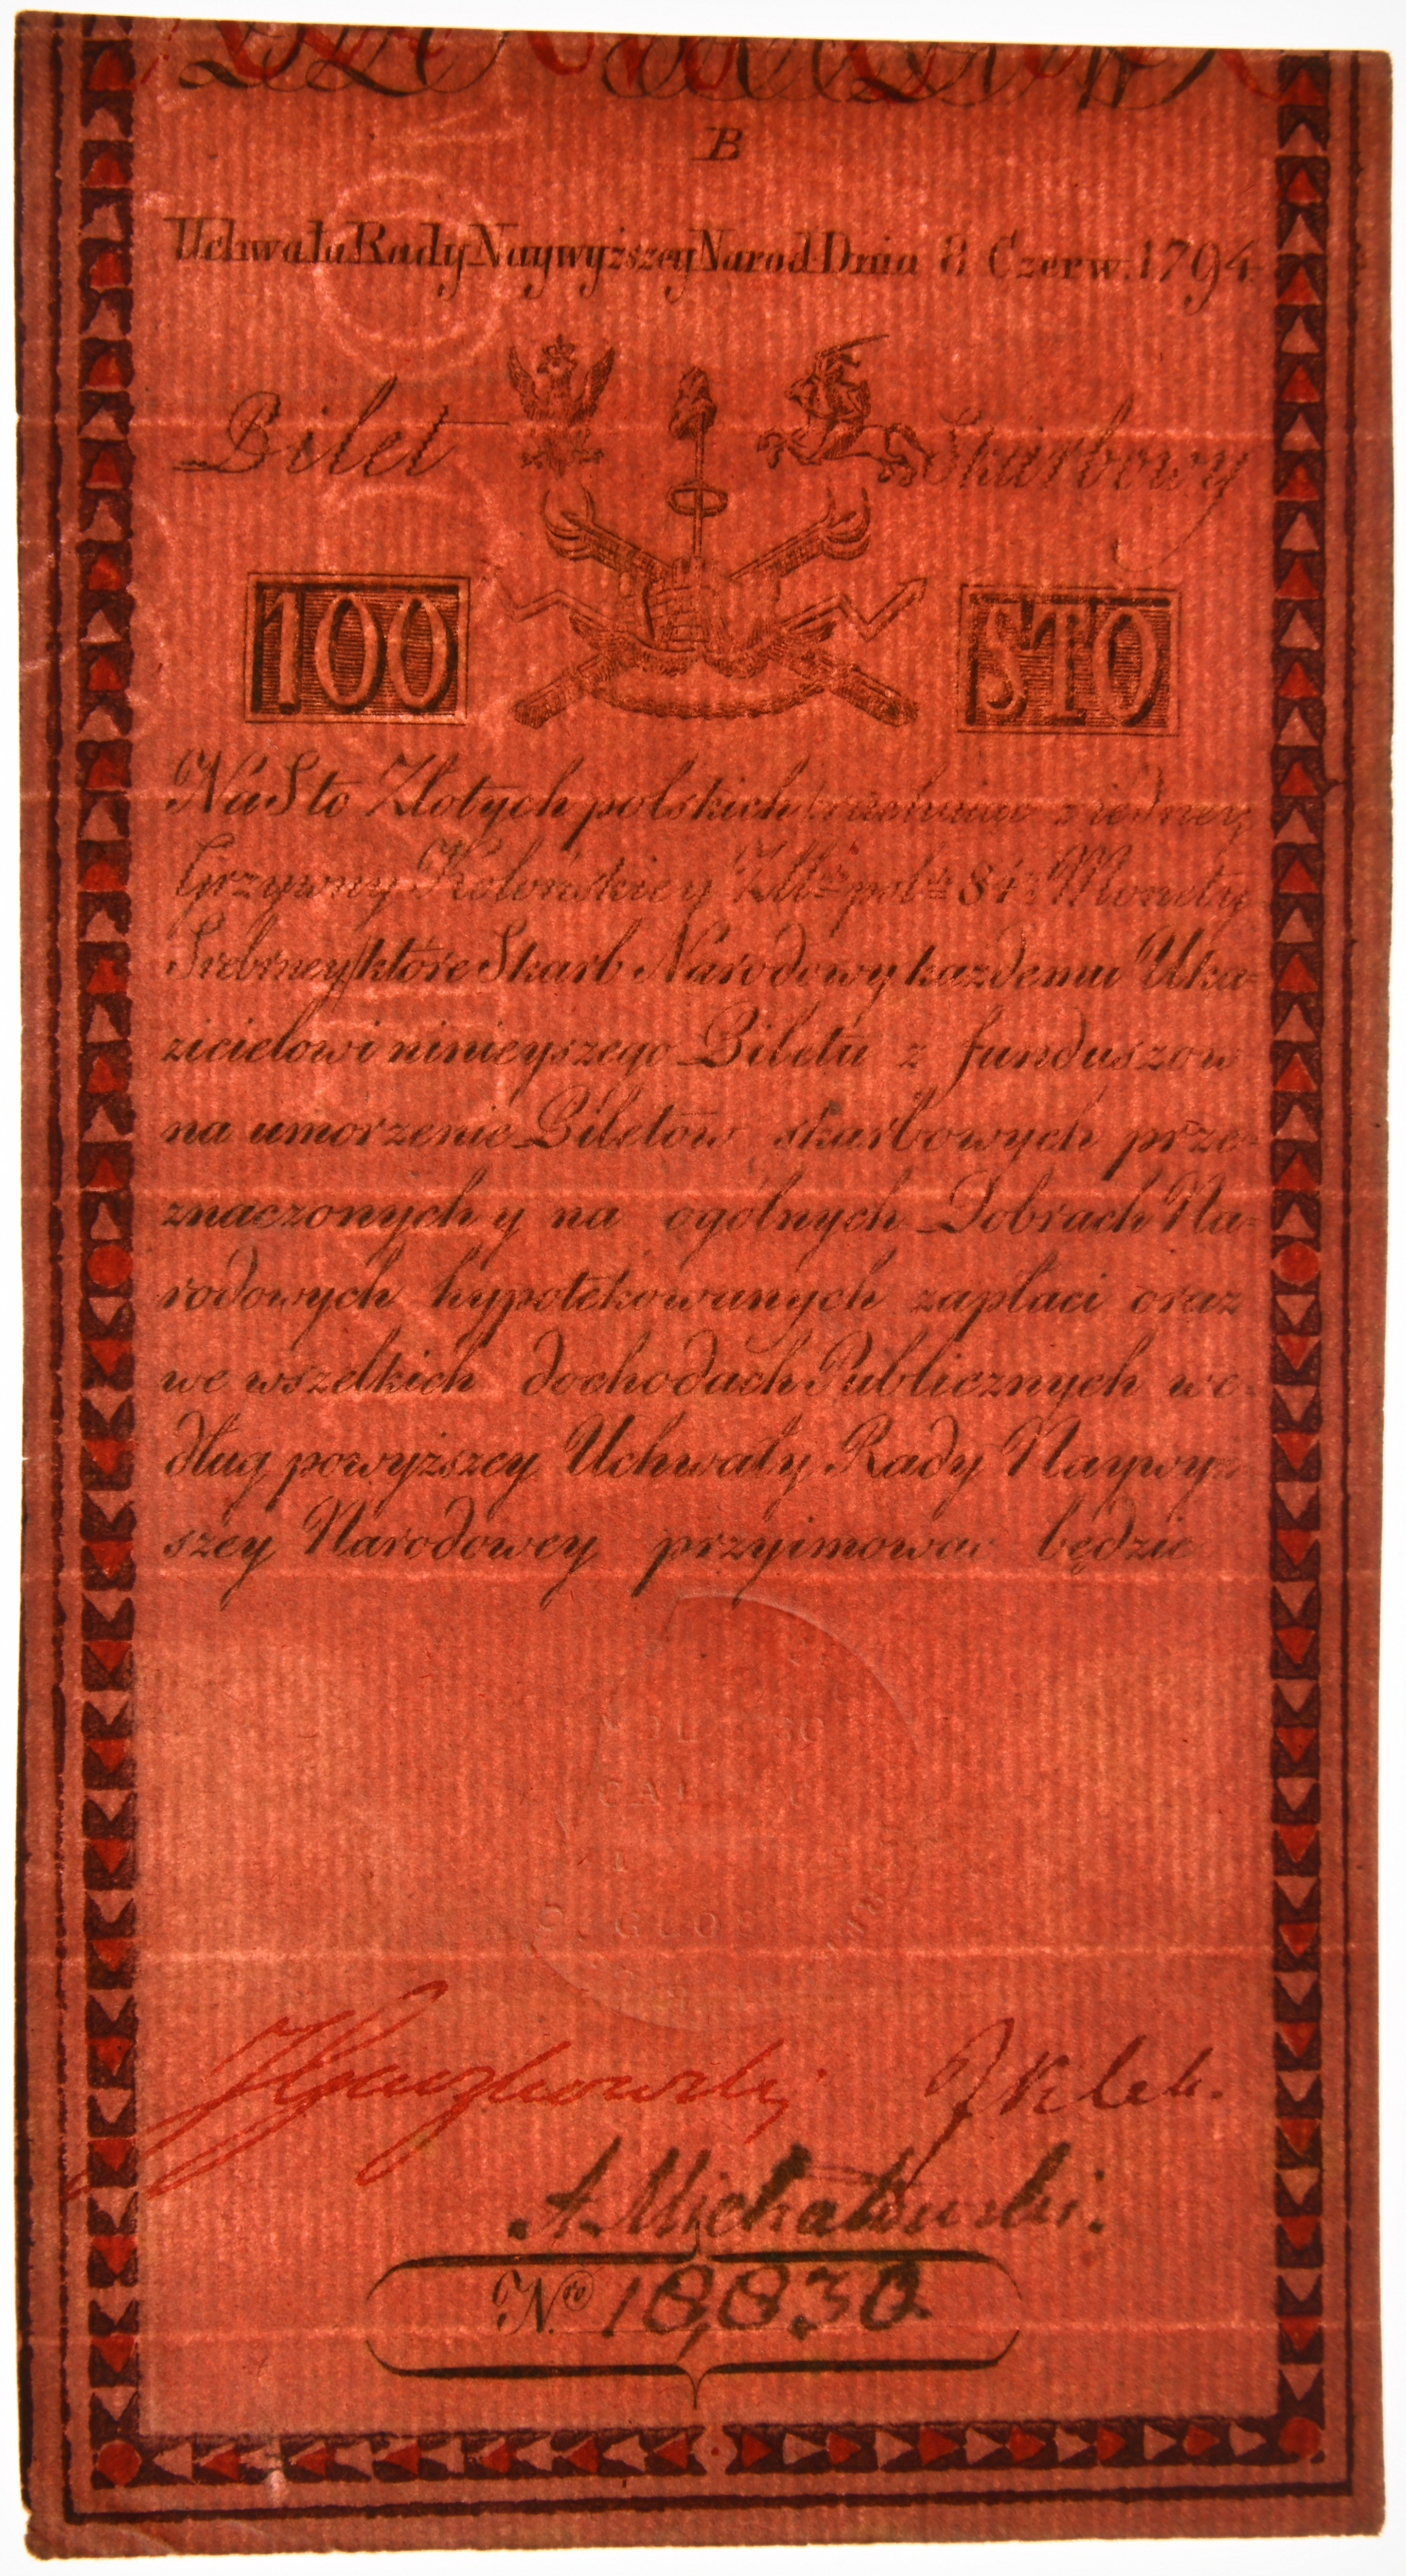 B
Uchwała Rady Naywyższey Narod Dnia 8 Czerw. 1794
Bilet Skarbowy
100 STO
Na Sto Złotych polskich rachuiąc z iedney
Grzywny Kolońskiey Zlł: pol: 84½ Monety
Srebrney, które Skarb Narodowy każdemu Uka-
zicielowi ninieyszego Biletu z funduszow
na umorzenie Biletów skarbowych prze-
znaczonych y na ogólnych Dobrach Na-
rodowych hypotekowanych zapłaci oraz
we wszelkich dochodach Publicznych we-
dług powyższey Uchwały Rady Naywyż-
szey Narodowey przyimować będzie
J Klek.
A. Michałowski.
Nro 18,830